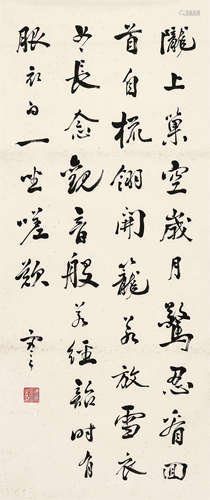 隴上巢空歲月驚忍看回
首自梳翎開籠若放雪衣
女長念觀音般若經詔時有
服衣白一坐嗟歎